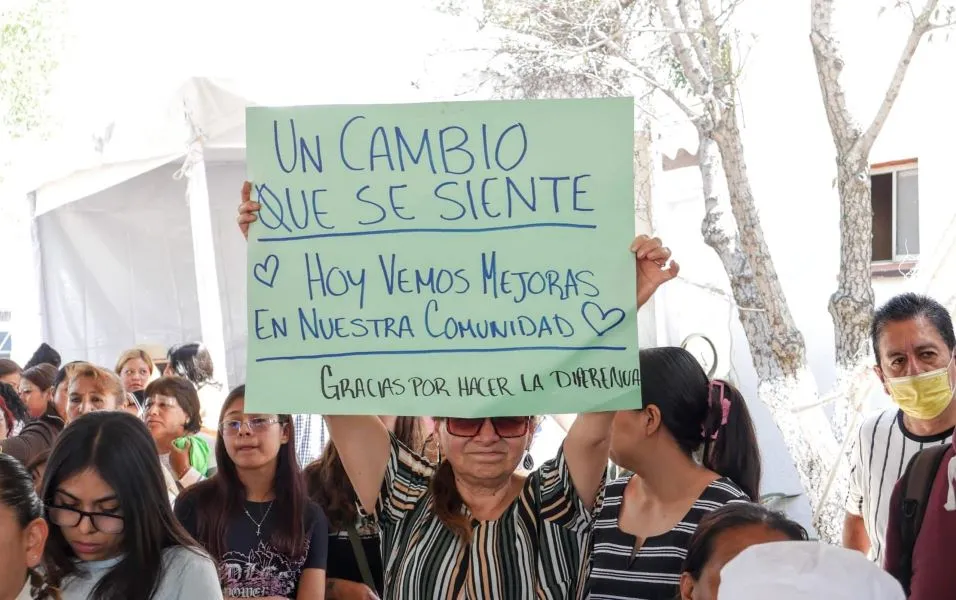 UN CAMBIO
QUE SE SIENTE
HOY VEMOS MEJORAS
EN NUESTRA COMUNIDAD
GRACIAS POR HACER LA DIFERENCIA